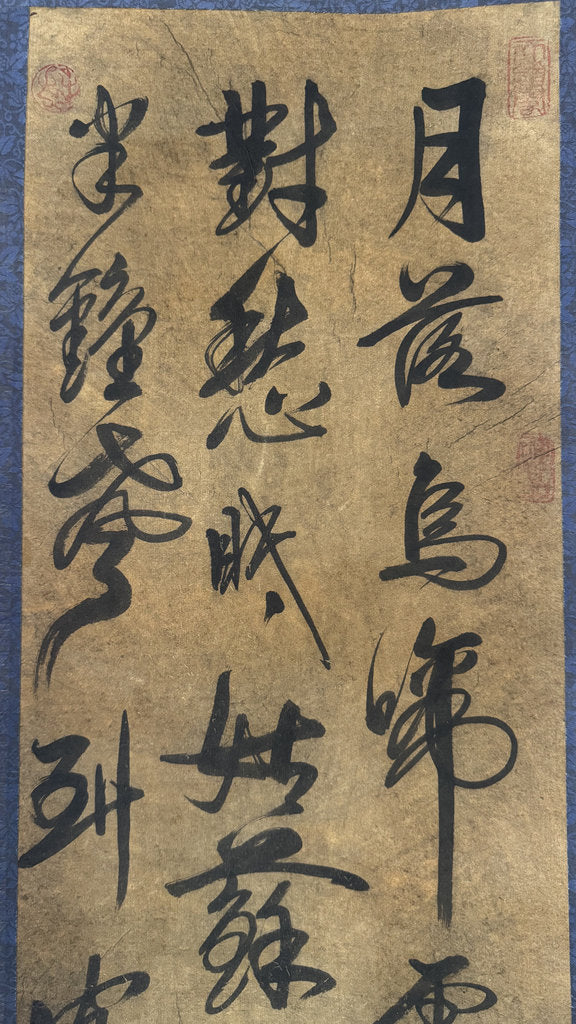 月落烏啼
對愁眠姑蘇
半鐘聲到